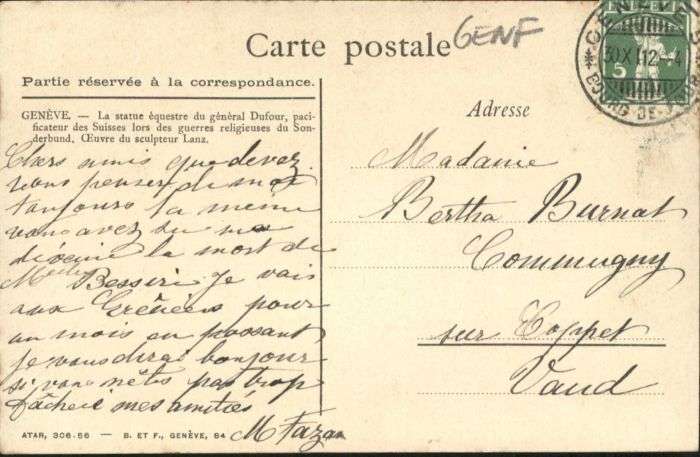 Carte postale
GENF
GENÈVE
30 XI 12 - 4
BOURG-DE-FOUR
5
Partie réservée à la correspondance.
GENÈVE. — La statue équestre du général Dufour, paci-
ficateur des Suisses lors des guerres religieuses du Son-
derbund. Œuvre du sculpteur Lanz.
Chers amis que devez
vous penser de moi
toujours la meme
vous avez du
la mort de
Besseri je vais
aux pour
un mois en passant
je vous dirai bonjour
si vous nêtes pas trop
fâchée mes amitiés
M Fazan
ATAR, 306-56 — B. ET F., GENÈVE, 84
Adresse
Madame
Bertha Burnat
Commugny
sur Coppet
Vaud